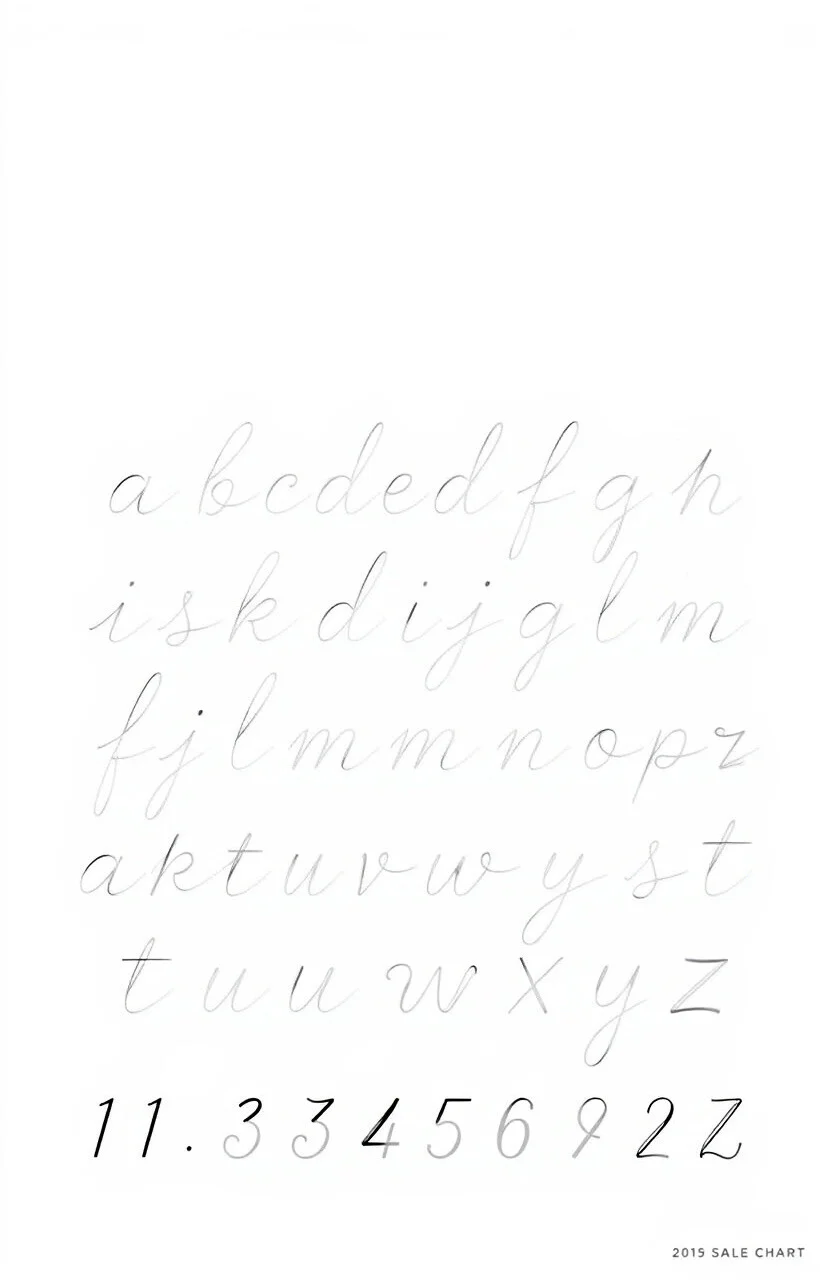 a b c d e d f g h
i s k d i j g l m
f j l m m n o p z
a k t u v w y s t
t u u w x y z
1 1 . 3 3 4 5 6 9 2 Z
2015 SALE CHART